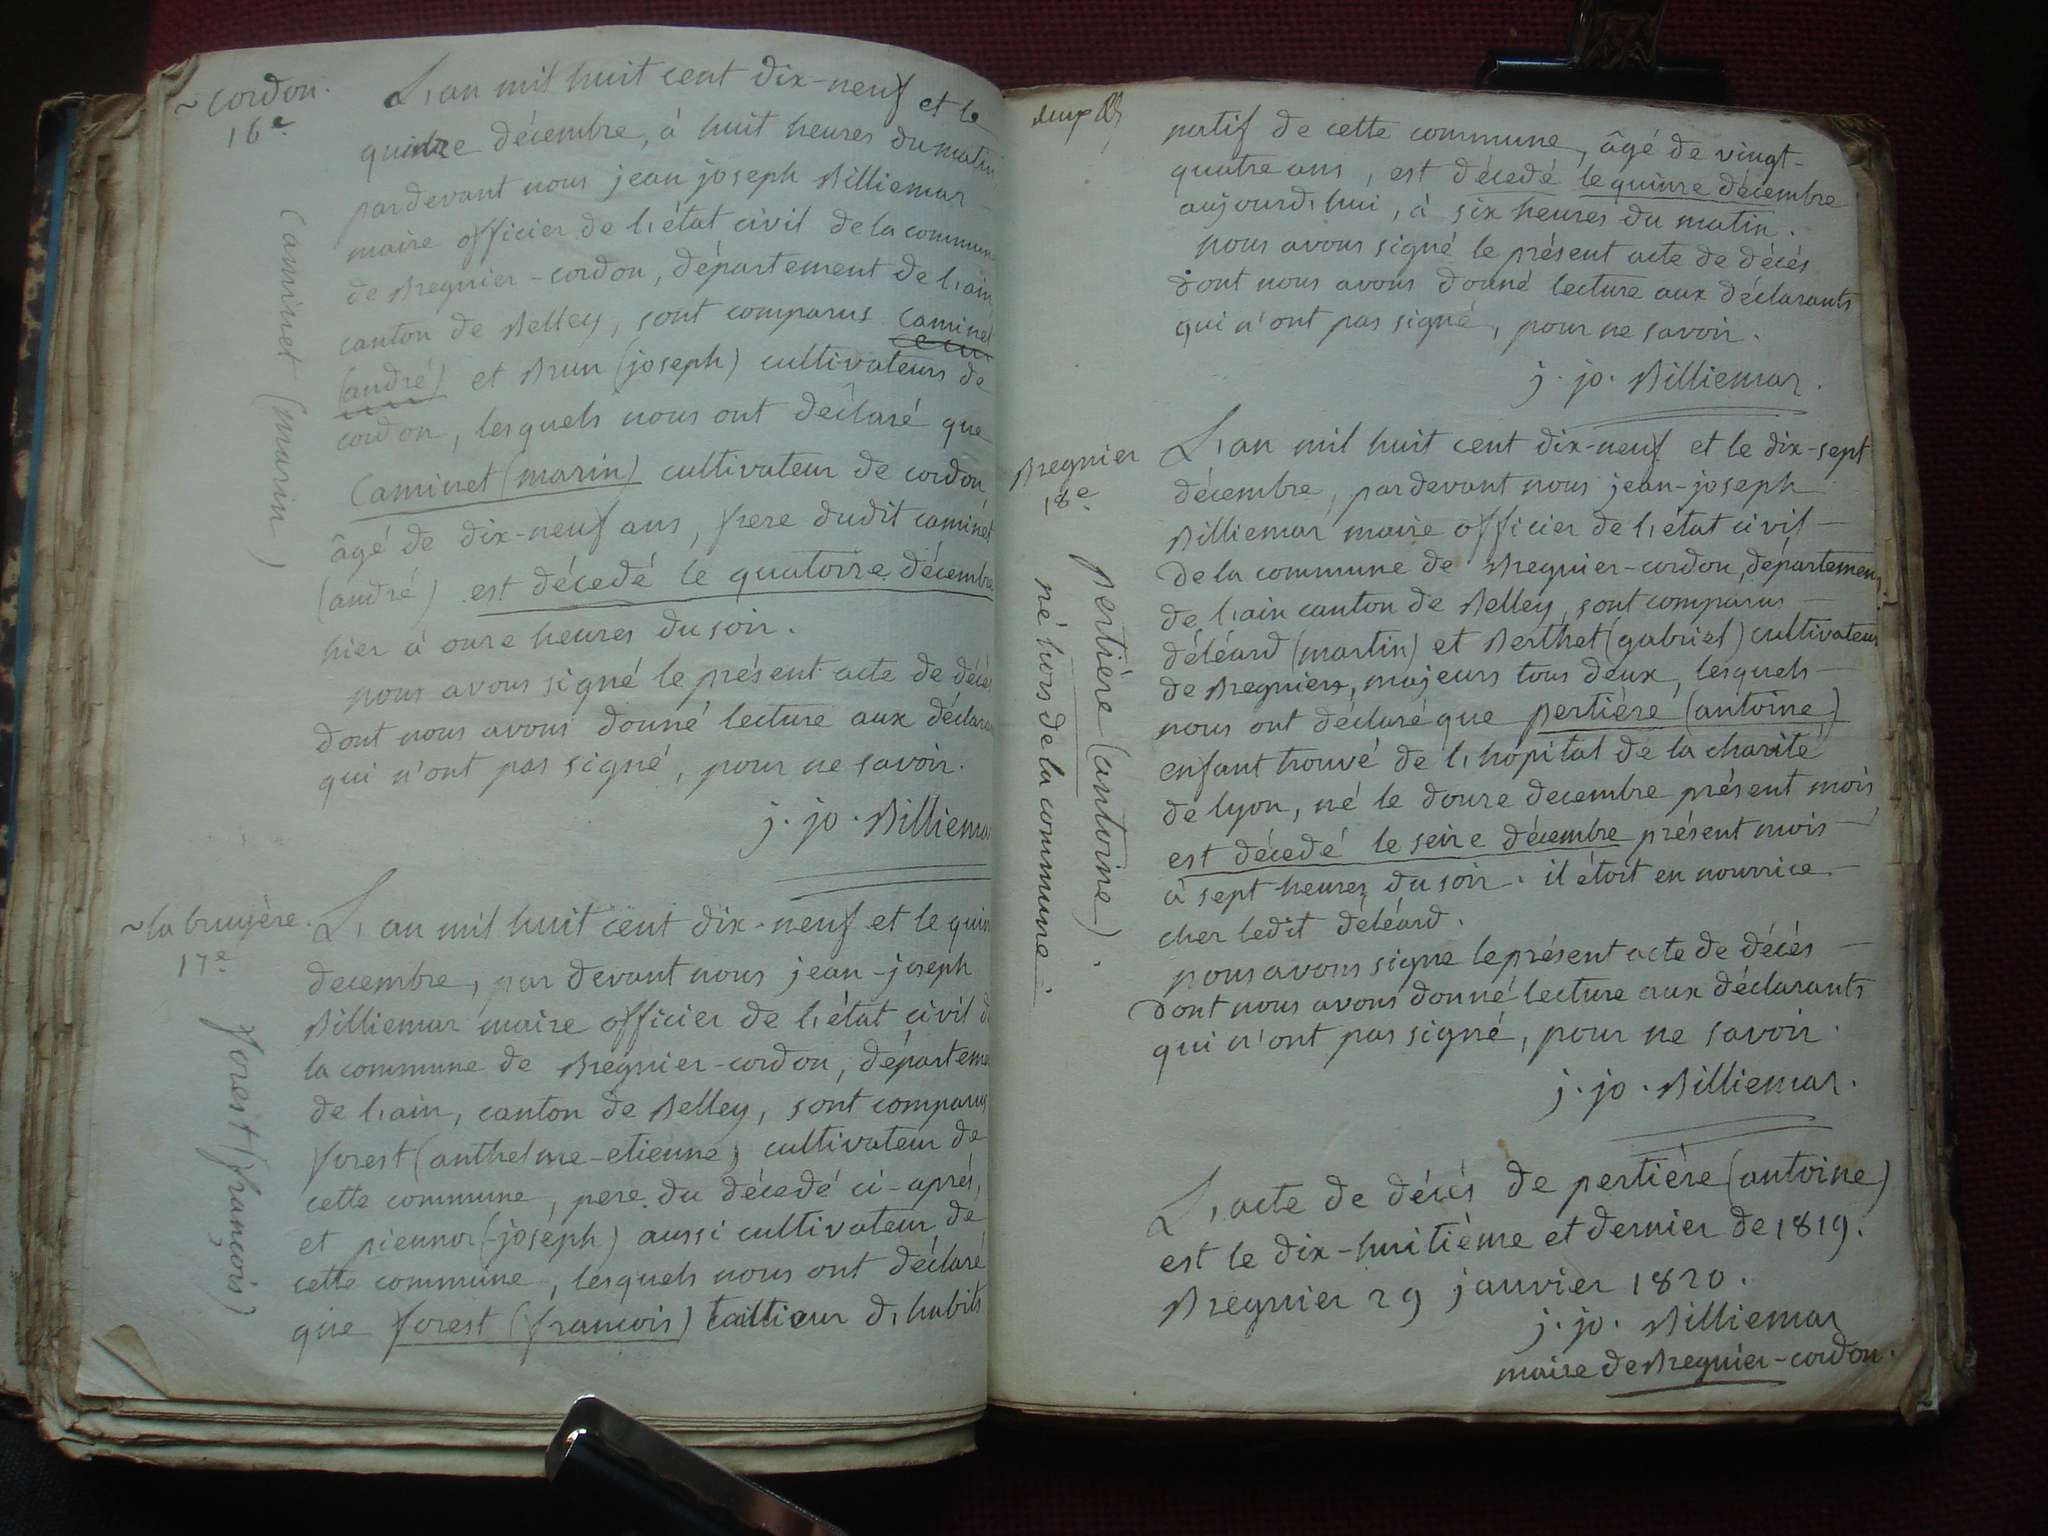 ~ cordon.
16e.
caminet (marin)
L'an mil huit cent dix-neuf et le
quinze décembre, à huit heures du matin,
pardevant nous jean joseph Billiemar
maire officier de l'état civil de la commune
de Bregnier-cordon, département de l'ain
canton de Belley, sont comparus caminet
(andré) et Brun (joseph) cultivateurs de
cordon, lesquels nous ont déclaré que
Caminet (marin) cultivateur de cordon
âgé de dix-neuf ans, frere dudit caminet
(andré) est décedé le quatorze décembre
hier à onze heures du soir.
nous avons signé le présent acte de décès
dont nous avons donné lecture aux déclarans
qui n'ont pas signé, pour ne savoir.
j. jo. Billiemar
~ la bruyère.
17e.
forest (françois)
L'an mil huit cent dix-neuf et le quin
decembre, par devant nous jean-joseph
Billiemar maire officier de l'état civil de
la commune de Bregnier-cordon, départeme
de l'ain, canton de Belley, sont comparus
forest (anthelme-etienne) cultivateur de
cette commune, pere du décedé ci-aprés,
et (joséph) aussi cultivateur de
cette commune, lesquels nous ont déclaré
que forest (francois) tailleur d'habits
natif de cette commune, âgé de vingt-
quatre ans, est décedé le quinze décembre
aujourd'hui, à six heures du matin.
nous avons signé le présent acte de décés
dont nous avons donné lecture aux déclarants
qui n'ont pas signé, pour ne savoir.
j. jo. Billiemar.
Bregnier
18e.
Pertière (antoine)
né hors de la commune
L'an mil huit cent dix-neuf et le dix-sept
décembre, pardevant nous jean-joseph
Billiemar maire officier de l'état civil
de la commune de Bregnier-cordon, département
de l'ain canton de Belley, sont comparus
déléard (martin) et Berthet (gabriel) cultivateurs
de Bregnier, majeurs tous deux, lesquels
nous ont déclaré que pertière (antoine)
enfant trouvé de l'hopital de la charité
de lyon, né le douze decembre présent mois
est décedé le seize décembre présent mois
à sept heures du soir. il étoit en nourrice
chez ledit déléard.
nous avons signé le présent acte de décés
dont nous avons donné lecture aux déclarants
qui n'ont pas signé, pour ne savoir.
j. jo. Billiemar.
L'acte de décès de pertière (antoine)
est le dix-huitième et dernier de 1819.
Bregnier 29 janvier 1820.
j. jo. Billiemar
maire de Bregnier-cordon.